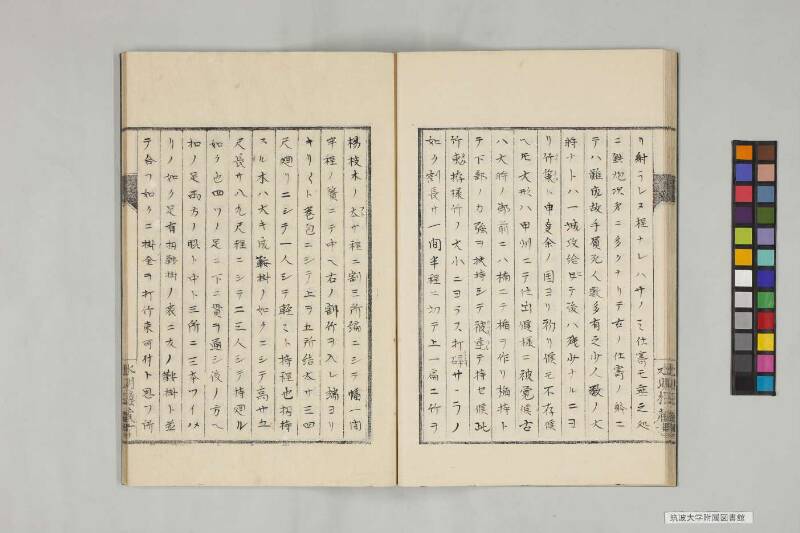 リ射ラレヌ程ナレハサノミ仕寄モ無之処
ニ鉄炮次第ニ多クナリテ古ノ仕寄ノ躰ニ
テハ難成故手負死人数多有之少人数ノ大
将ナトハ一城攻給テ後ハ残少ナルニヨ
リ竹束ト申支余ノ国ヨリ初リ候モ不存候
ヘ共大形ハ甲州ニテ仕出候様ニ被覚候古
ハ大将ノ御前ニハ楠ニテ楯ヲ作リ楯持ト
テ下部ノ力強ヲ扶持シテ彼楯ヲ持セ候此
竹束拵様竹ノ大小ニヨラス打砕サヽラノ
如ク割長サ一間半程ニ切テ上一扁ニ竹ヲ
楊枝木ノ太サ程ニ割三所編ニシテ幅一間
半程ノ簀ニテ中ヘ右ノ割竹ヲ入レ端ヨリ
キリヽト巻包ニシテ上ヲ五所結太サ三四
尺廻リニシテ一人シテ軽々ト持程也扨持
スル木ハ大キ成鞍掛ノ如クニシテ高サ五
尺長サ八九尺程ニシテ二三人シテ持廻ル
如ク也四ツノ足ニ下ニ貫ヲ通シ後ノ方ヘ
扣ノ足両方ノ眼ト中ト三所ニ三本ツイメ
リノ如ク足有扨鞍掛ノ表ニ友ノ鞍掛ト並
テ合フ如クニ掛金ヲ打竹束可付ト思フ所
筑波大学附属図書館